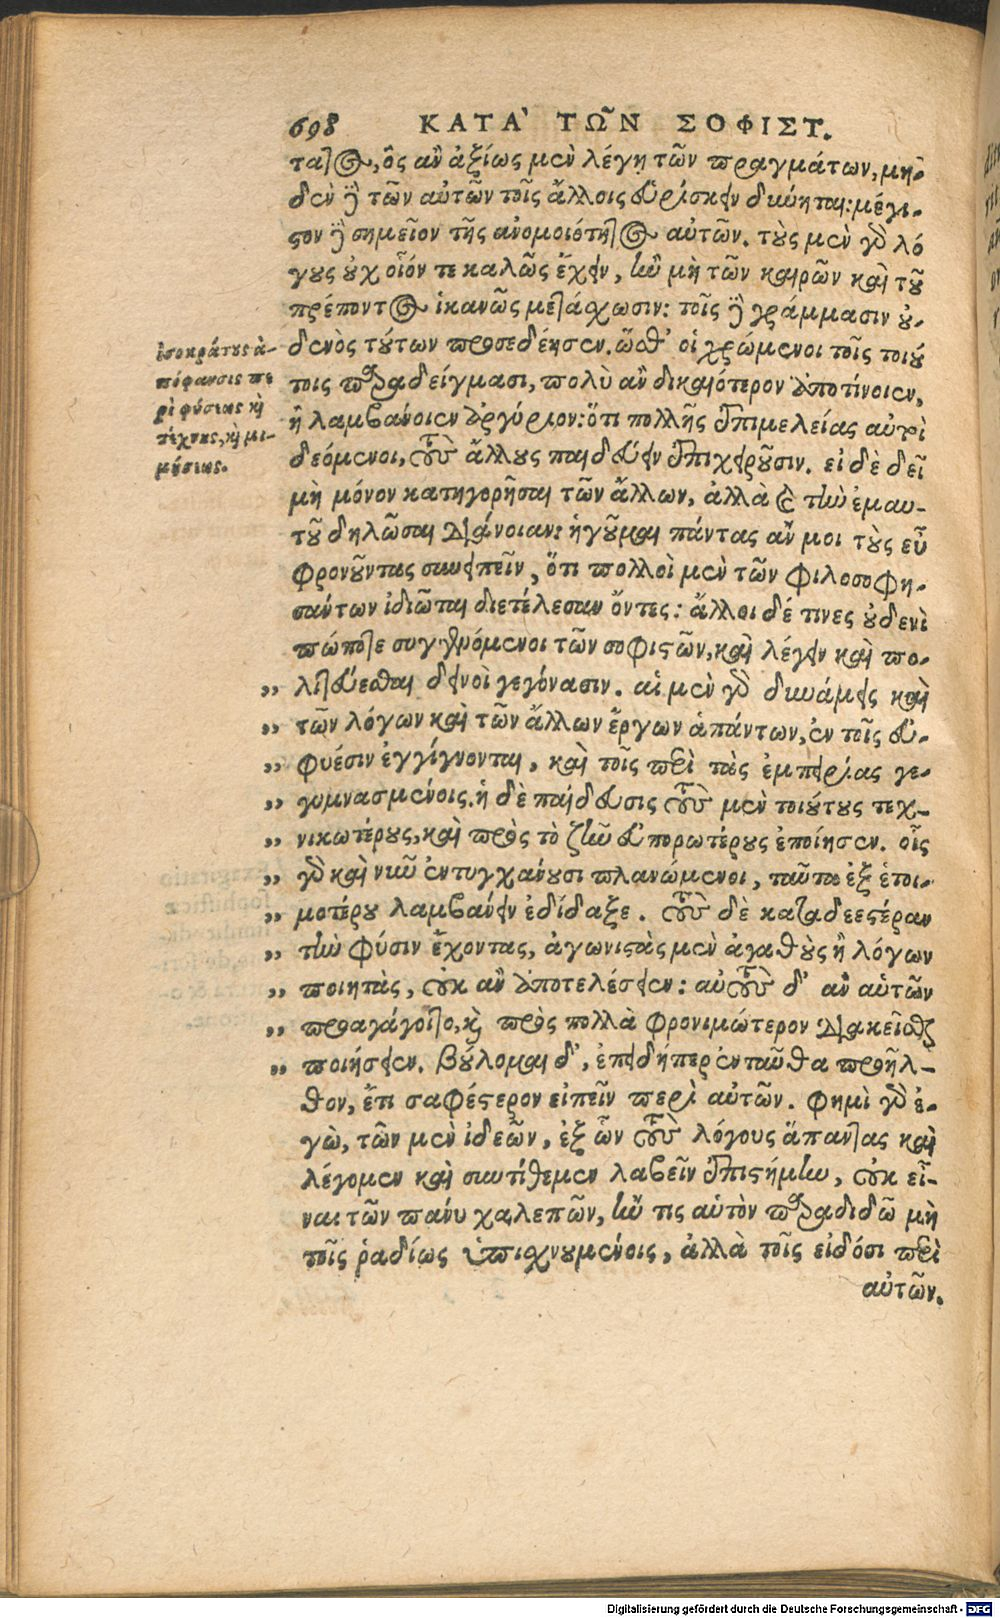 698 ΚΑΤΑ' ΤΩ͂Ν ΣΟΦΙΣΤ.
τατος, ὃς ἂν ἀξίως μὲν λέγῃ τῶν πραγμάτων, μη-
δὲν δὲ τῶν αὐτῶν τοῖς ἄλλοις εὑρίσκειν δύνηται: μέγι-
στον δὲ σημεῖον τῆς ἀνομοιότητος αὐτῶν. τοὺς μὲν γὰρ λό
γους οὐχ οἷόν τε καλῶς ἔχειν, ἢν μὴ τῶν καιρῶν καὶ τοῦ
πρέποντος ἱκανῶς μετάχωσιν: τοῖς δὲ γράμμασιν οὐ-
δενὸς τούτων προσεδέησεν. ὥσθ' οἱ χρώμενοι τοῖς τοιού
τοις παραδείγμασι, πολὺ ἂν δικαιότερον ἀποτίνοιεν,
ἢ λαμβάνοιεν ἀργύριον: ὅτι πολλῆς ἐπιμελείας αὐτοὶ
δεόμενοι, τοὺς ἄλλους παιδεύειν ἐπιχειροῦσιν. εἰ δὲ δεῖ
μὴ μόνον κατηγορῆσαι τῶν ἄλλων, ἀλλὰ καὶ τὴν ἐμαυ-
τοῦ δηλῶσαι διάνοιαν: ἡγοῦμαι πάντας ἄν μοι τοὺς εὖ
φρονοῦντας συνειπεῖν, ὅτι πολλοὶ μὲν τῶν φιλοσοφη-
σάντων ἰδιῶται διετέλεσαν ὄντες: ἄλλοι δέ τινες οὐδενὶ
πώποτε συγγενόμενοι τῶν σοφιστῶν, καὶ λέγειν καὶ πο-
„ λιτεύεσθαι δεινοὶ γεγόνασιν. αἱ μὲν γὰρ δυνάμεις καὶ
„ τῶν λόγων καὶ τῶν ἄλλων ἔργων ἁπάντων, ἐν τοῖς εὐ-
„ φυέσιν ἐγγίγνονται, καὶ τοῖς περὶ τὰς ἐμπειρίας γε-
„ γυμνασμένοις. ἡ δὲ παίδευσις τοὺς μὲν τοιούτους τεχ-
„ νικωτέρους, καὶ πρὸς τὸ ζῆν εὐπορωτέρους ἐποίησεν. οἷς
„ γὰρ καὶ νῦν ἐντυγχάνουσι πλανώμενοι, ταῦτα ἐξ ἑτοι-
„ μοτέρου λαμβάνειν ἐδίδαξε. τοὺς δὲ καταδεεστέραν
„ τὴν φύσιν ἔχοντας, ἀγωνιστὰς μὲν ἀγαθοὺς ἢ λόγων
„ ποιητὰς, οὐκ ἂν ἀποτελέσειεν: αὐτοὺς δ' ἂν αὑτῶν
„ προαγάγοιτο, καὶ πρὸς πολλὰ φρονιμώτερον διακεῖσθαι
„ ποιήσειεν. βούλομαι δ', ἐπειδήπερ ἐνταῦθα προῆλ-
θον, ἔτι σαφέστερον εἰπεῖν περὶ αὐτῶν. φημὶ γὰρ ἐ-
γὼ, τῶν μὲν ἰδεῶν, ἐξ ὧν τοὺς λόγους ἅπαντας καὶ
λέγομεν καὶ συντίθεμεν λαβεῖν ἐπιστήμην, οὐκ εἶ-
ναι τῶν πάνυ χαλεπῶν, ἤν τις αὑτὸν παραδιδῶ μὴ
τοῖς ῥαδίως ὑπισχνουμένοις, ἀλλὰ τοῖς εἰδόσι περὶ
αὐτῶν.
ἰσοκράτους ἀ-
πόφανσις πε
ρὶ φύσεως καὶ
τέχνης, καὶ μι-
μήσεως.
Digitalisierung gefördert durch die Deutsche Forschungsgemeinschaft - DFG